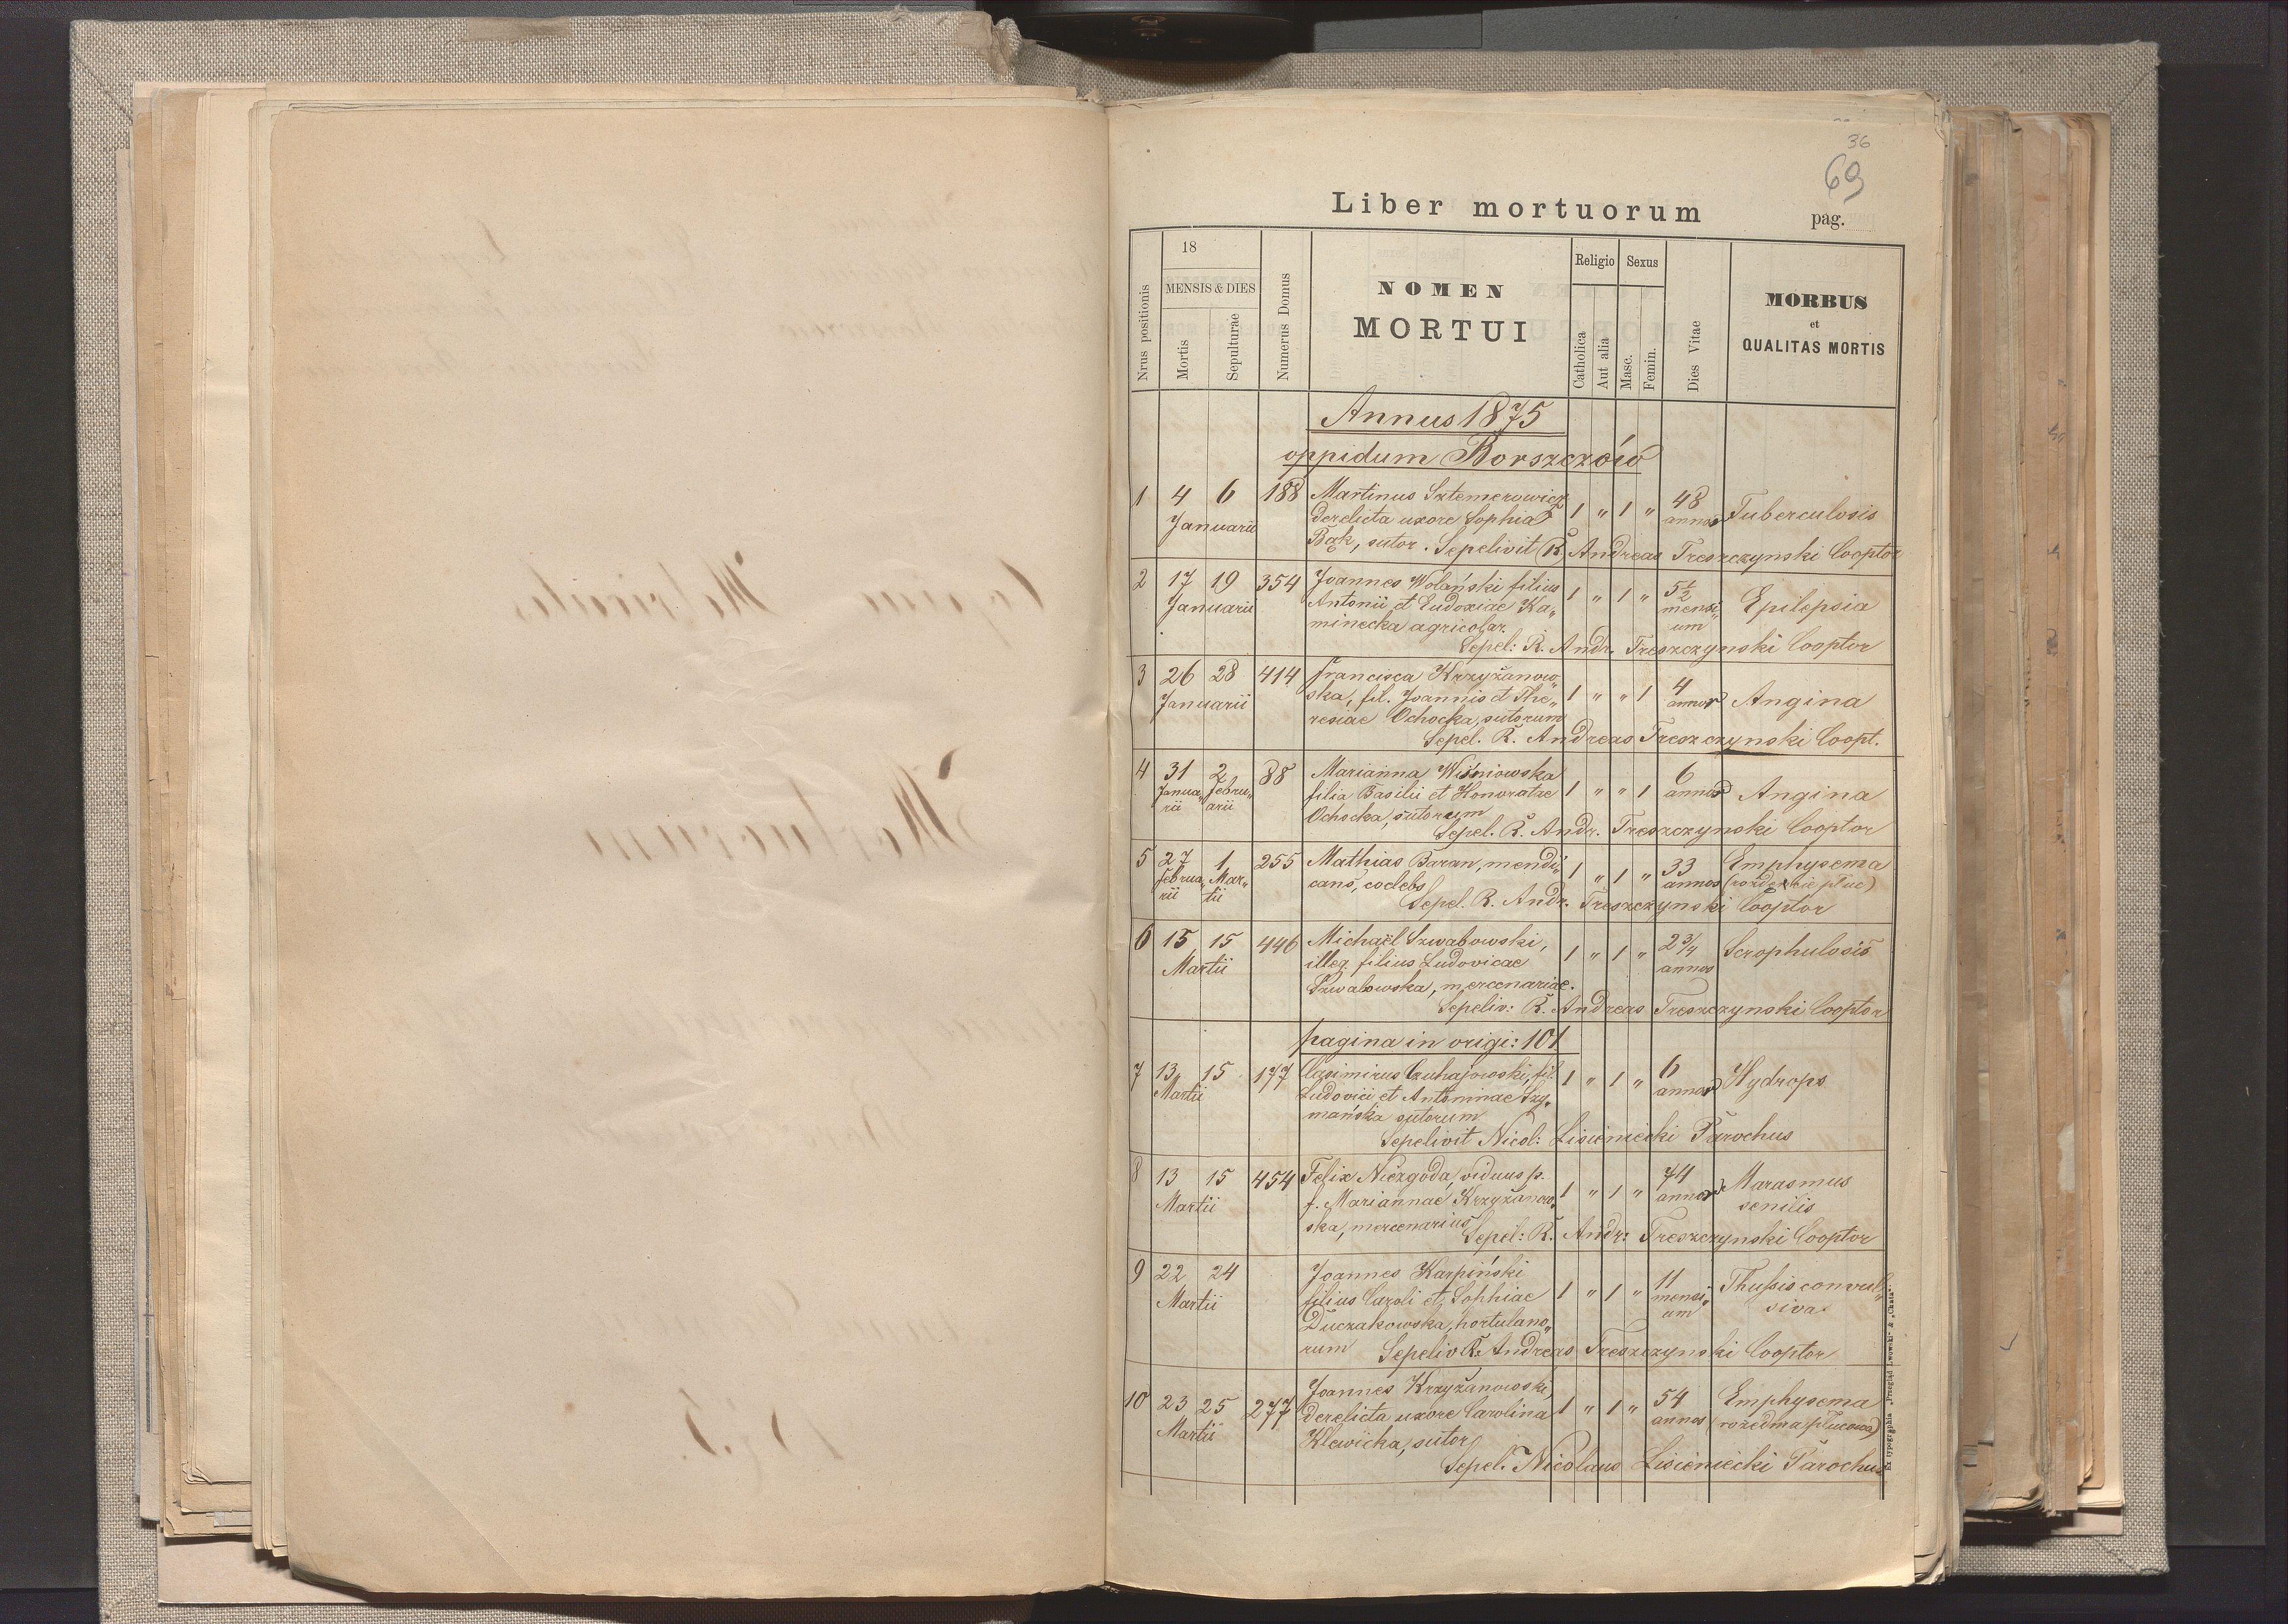 36
69
Liber mortuorum
pag.
Nrus positionis
18
MENSIS & DIES
Mortis
Sepulturae
Numerus Domus
NOMEN
MORTUI
Religio
Catholica
Aut alia
Sexus
Masc.
Femin.
Dies Vitae
MORBUS
et
QUALITAS MORTIS
Annus 1875
oppidum Borszczów
1 4 6 188 Martinus Sztemerowicz 1 " 1 " 48 Tuberculosis
Januarii derelicta uxore Sophia annos
Bąk, sutor. Sepelivit R. Andreas Treszczynski Cooptor
2 17 19 354 Joannes Wolański filius 1 " 1 " 5 1/2 Epilepsia
Januarii Antonii et Eudoxiae Ka„ mensi„
minecka agricolar. um
Sepel: R. Andr. Treszczynski Cooptor
3 26 28 414 Francisca Krzyżanow„ 1 " " 1 4 Angina
Januarii ska, fil. Joannis et The„ annor
resiae Ochocka, sutorum
Sepel. R. Andreas Treszczynski Coopt.
4 31 2 88 Marianna Wiśniowska 1 " " 1 6 Angina
Janua„ Febru„ filia Basilii et Honoratae annos
rii arii Ochocka, sutorum
Sepel. R. Andr. Treszczynski Cooptor
5 27 1 255 Mathias Baran, mendi„ 1 " 1 " 33 Emphysema
Februa„ Mar„ cans, coelebs annos
rii tii Sepel. R. Andr. Treszczynski Cooptor
6 15 15 446 Michaël Szwabowski, 1 " 1 " 2 3/4 Scrophulosis
Martii illeg. filius Ludovicae annos
Szwabowska, mercenariae.
Sepeliv: R. Andreas Treszczynski Cooptor
pagina in origi: 101
7 13 15 177 Casimirus Czuhajowski, fil. 1 " 1 " 6 Hydrops
Martii Ludovici et Antoninae Szy„ annos
mańska sutorum
Sepelivit Nicol: Lisieniecki Parochus
8 13 15 454 Felix Niezgoda, viduus p. 1 " 1 " 74 Marasmus
Martii f. Mariannae Krzyżanow„ annos senilis
ska, mercenarius
Sepel: R. Andr: Treszczynski Cooptor
9 22 24 Joannes Karpiński 1 " 1 " 11 Thussis convul„
Martii filius Caroli et Sophiae mensi„ siva
Duczakowska, hortulano„ um
rum Sepeliv R. Andreas Treszczynski Cooptor
10 23 25 277 Joannes Krzyżanowski, 1 " 1 " 54 Emphysema
Martii derelicta uxore Carolina annos (rozedma płucowa)
Klewicka, sutor
Sepel. Nicolaus Lisieniecki Parochus
Ex typographia „Przegląd Lwowski" & „Chata"